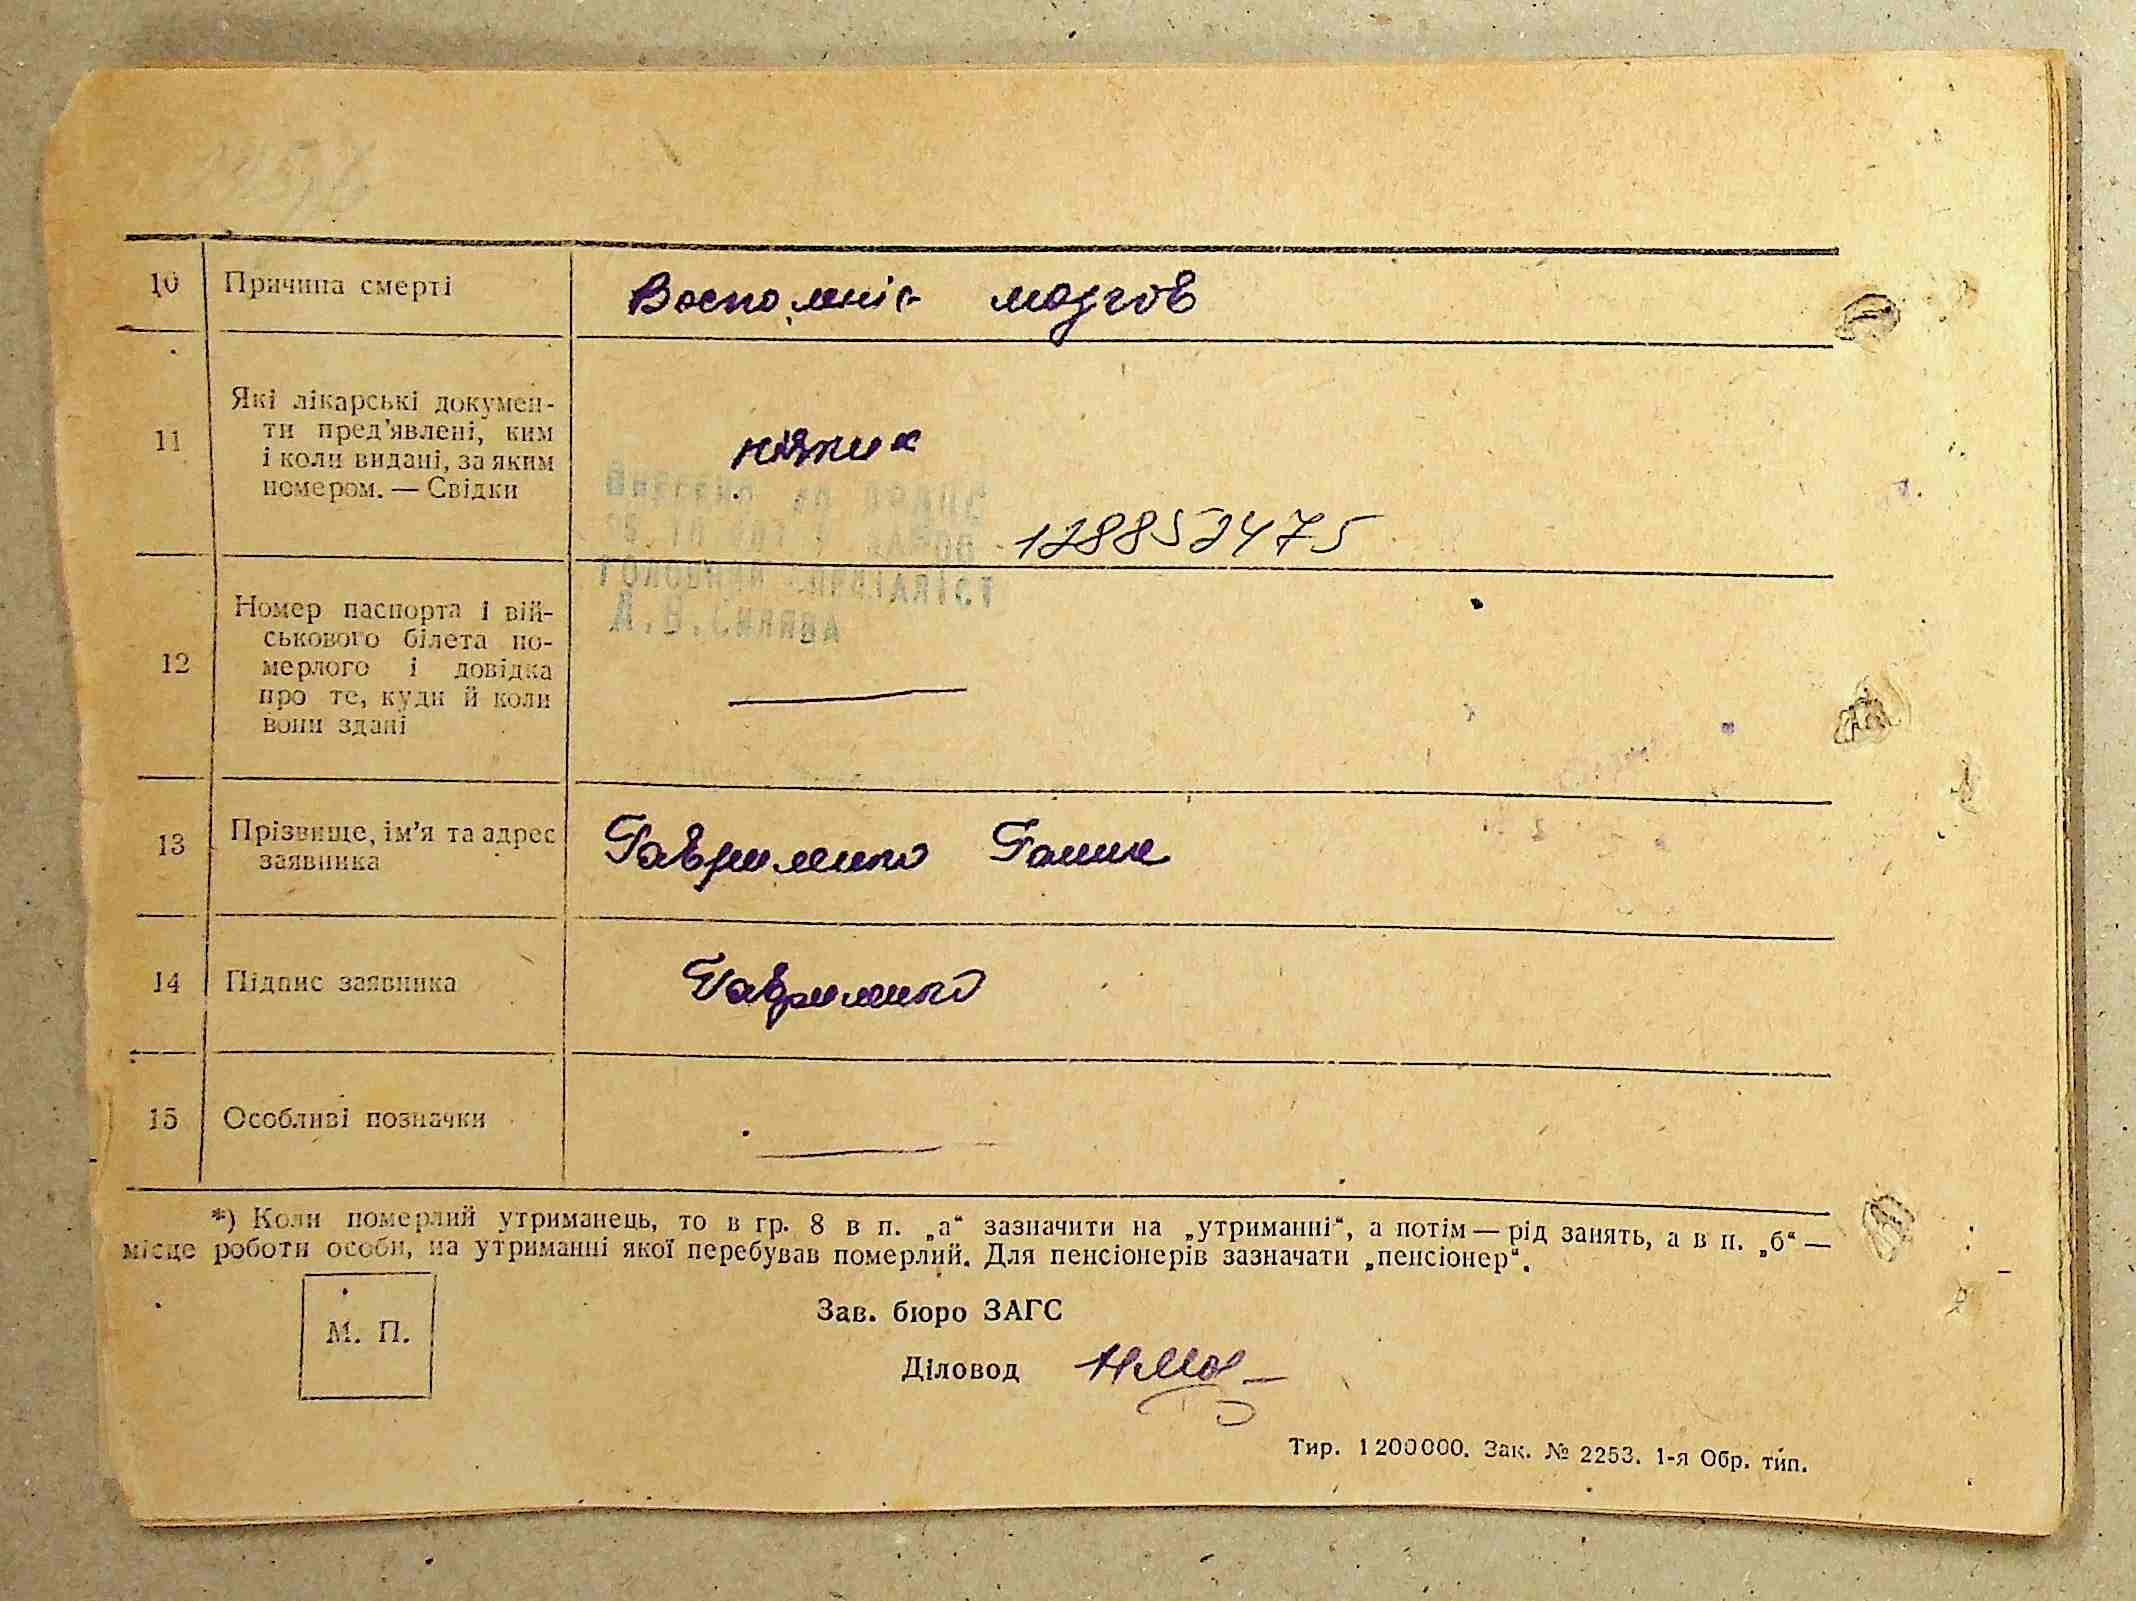 10 Причина смерті
Воспомніє мозгов
11 Які лікарські докумен-
ти пред'явлені, ким
і коли видані, за яким
номером. — Свідки
128852475
ГОЛОВНИЙ СПЕЦІАЛІСТ
12 Номер паспорта і вій-
ськового білета по-
мерлого і довідка
про те, куди й коли
вони здані
13 Прізвище, ім'я та адрес
заявника
Гавриленко Ганна
14 Підпис заявника
Гавриленко
15 Особливі позначки
*) Коли померлий утриманець, то в гр. 8 в п. „а“ зазначити на „утриманні“, а потім — рід занять, а в п. „б“ —
місце роботи особи, на утриманні якої перебував померлий. Для пенсіонерів зазначати „пенсіонер“.
М. П.
Зав. бюро ЗАГС
Діловод
Тир. 1200000. Зак. № 2253. 1-я Обр. тип.